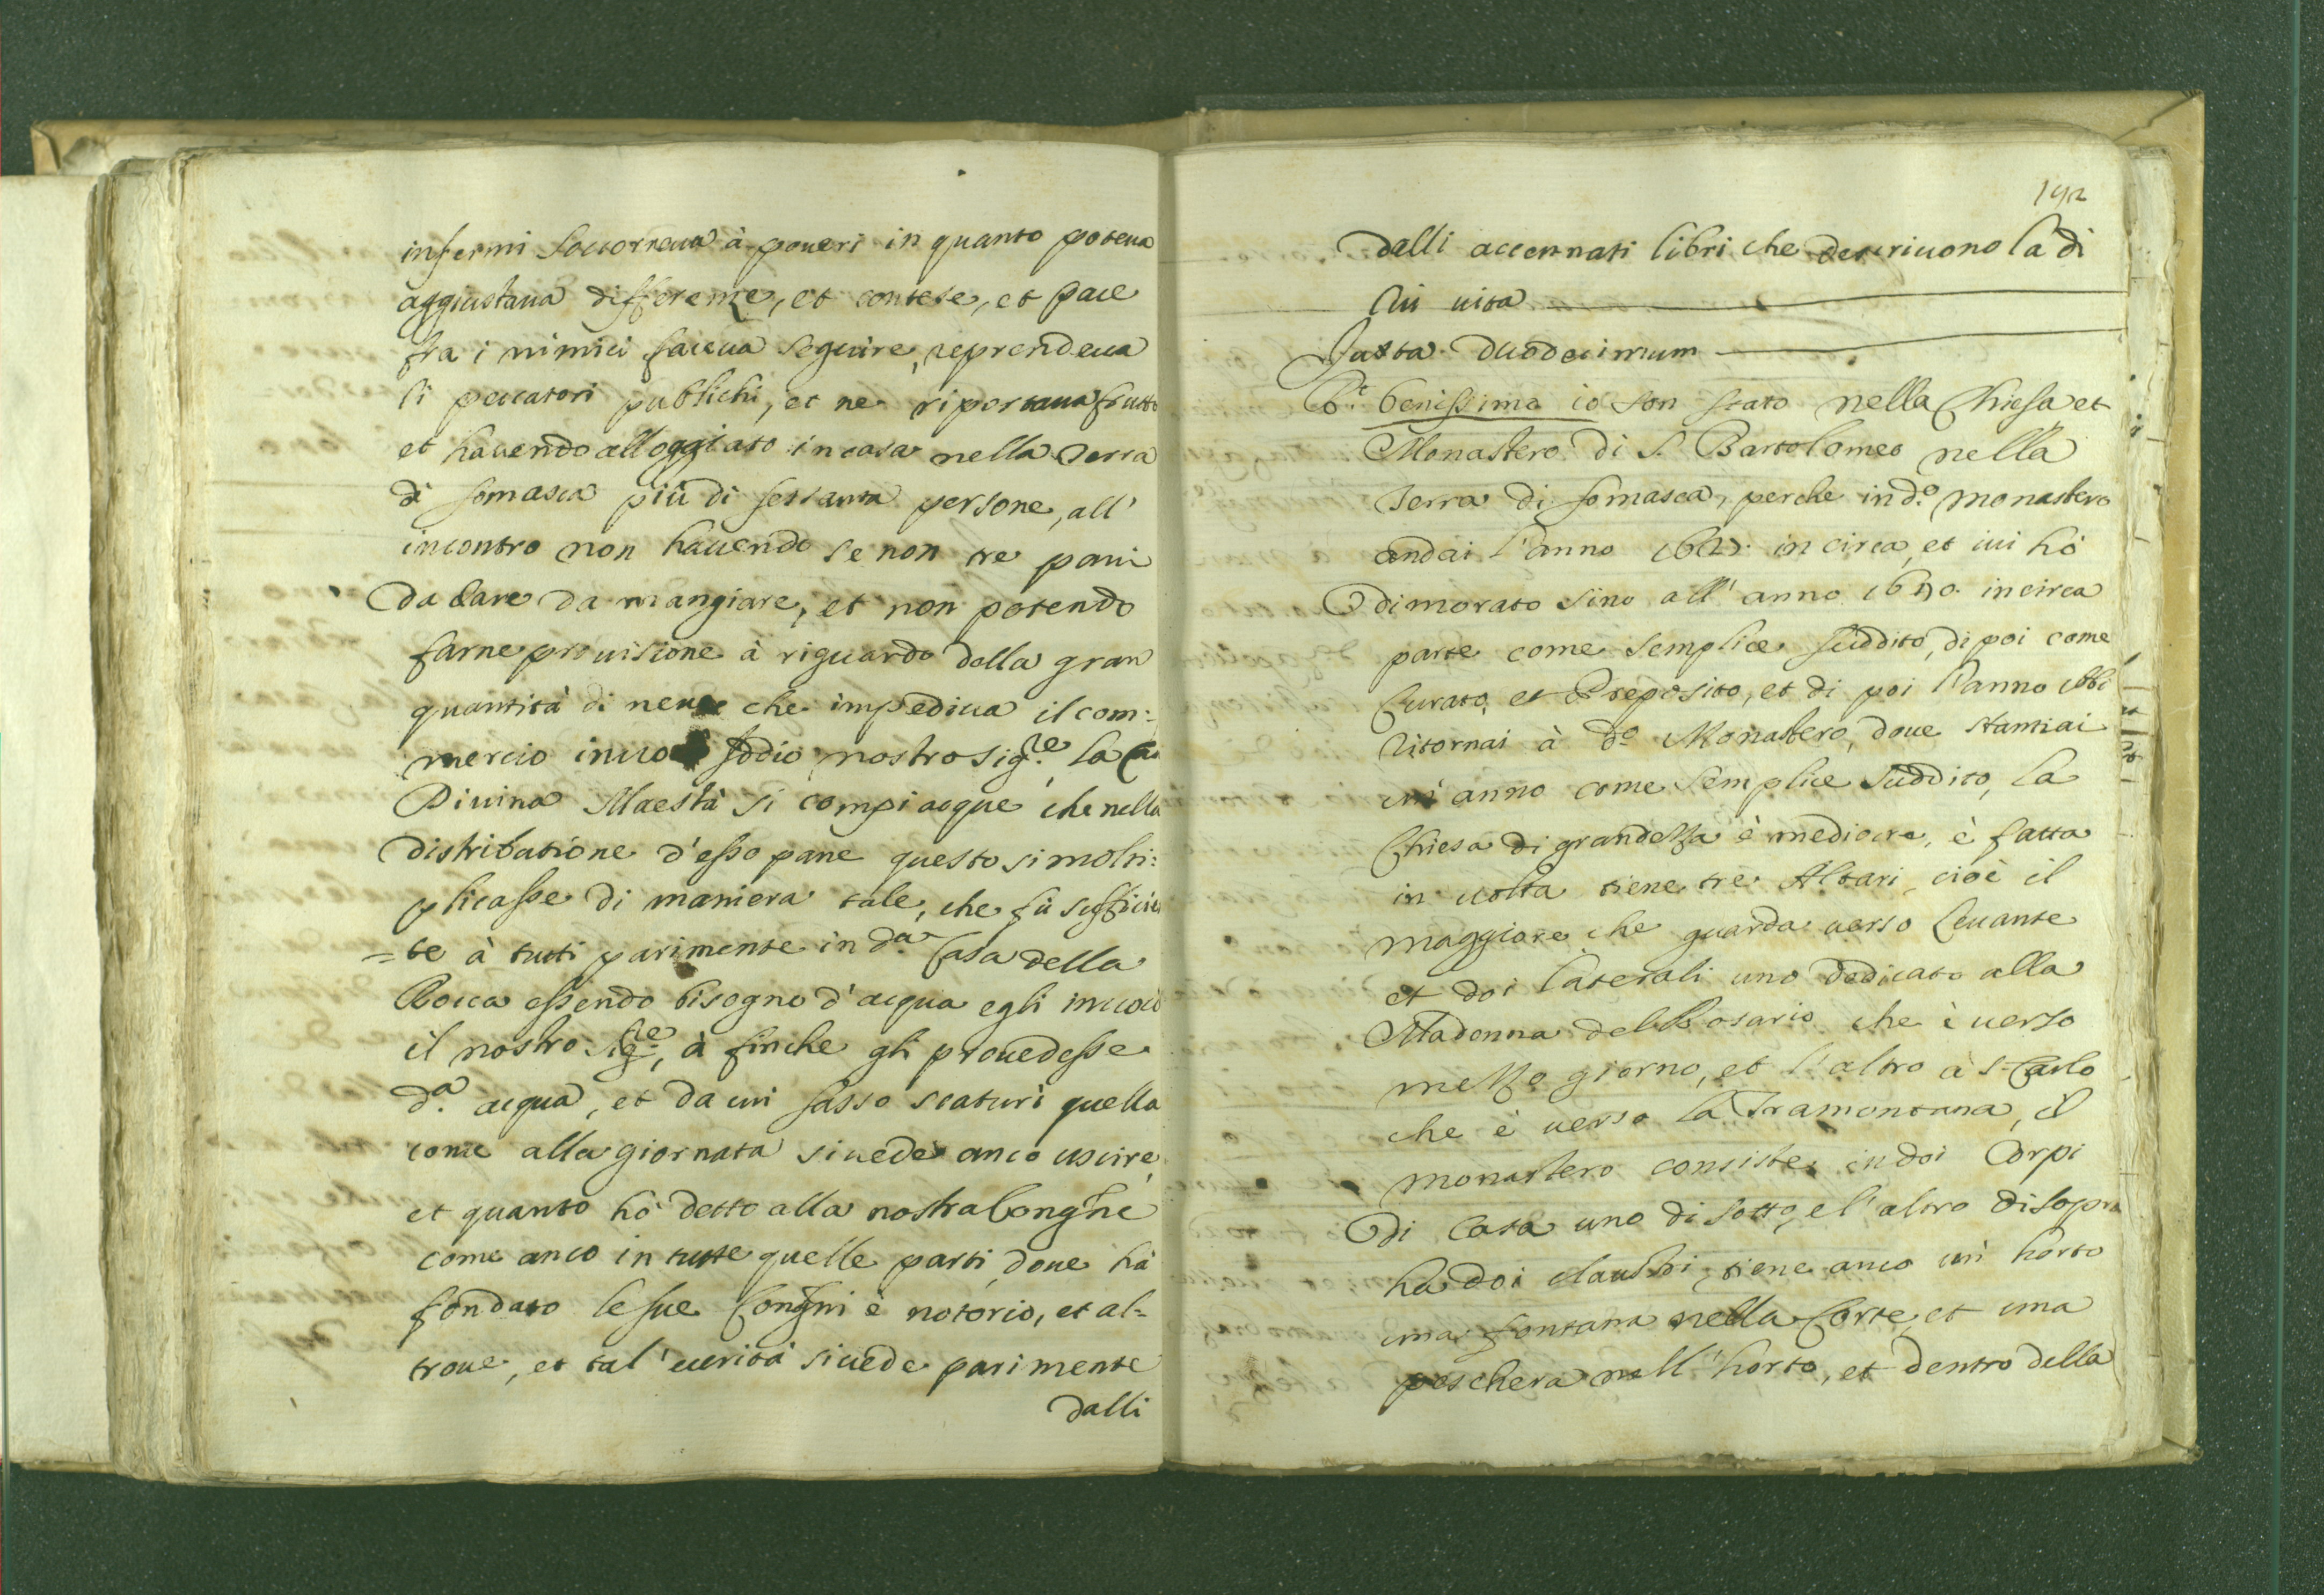 infermi soccorreua à poueri in quanto poteua
aggiustaua differenze, et contese, et pace
fra i nimici faceua seguire, reprendeua
li peccatori publichi, et ne riportaua frutto
et hauendo alloggiato in casa nella Terra
di somasca più di sessanta persone, all'
incontro non hauendo se non tre pani
da dare da mangiare, et non potendo
farne prouisione à riguardo della gran
quantità di neue che impediua il com:
mercio inuocò Iddio nostro Sig.re, la cui
Diuina Maestà si compiacque che nella
distributione d'esso pane questo si molti:
plicasse di maniera tale, che fù sufficien
=te à tutti parimente in d.a Casa della
Rocca essendo bisogno d'acqua egli inuocò
il nostro Sig.re, à finche gli prouedesse
d.a acqua, et da un sasso scaturì quella
come alla giornata si uede anco uscire,
et quanto hò detto alla nostra Congne
come anco in tutte quelle parti, doue hà
fondato le sue Congni è notorio, et al=
troue, et tal' uerità si uede parimente
dalli
192
dalli accennati libri che descriuono la di
lui uita
Iuxta duodecimum
R.t benissimo io son stato nella Chiesa et
Monastero di S. Bartolomeo nella
Terra di somasca, perche in d.o monastero
andai l'anno in circa, et iui hò
dimorato sino all'anno 1650 incirca
parte come semplice suddito, di poi come
Curato, et Preposito, et di poi l'anno
ritornai à d.o Monastero, doue stantiai
un' anno come semplice suddito, la
Chiesa di grandezza è mediocre, è fatta
in uolta tiene tre Altari, cioè il
maggiore che guarda uerso Leuante
et doi laterali uno dedicato alla
Madonna del Rosario che è uerso
mezzo giorno, et l'altro à S. Carlo
che è uerso la Tramontana, il
monastero consiste in doi Corpi
di Casa uno di sotto, e l'altro di sopra
ha doi claustri, tiene anco un' horto
una fontana nella Corte, et una
peschera nell'horto, et dentro della